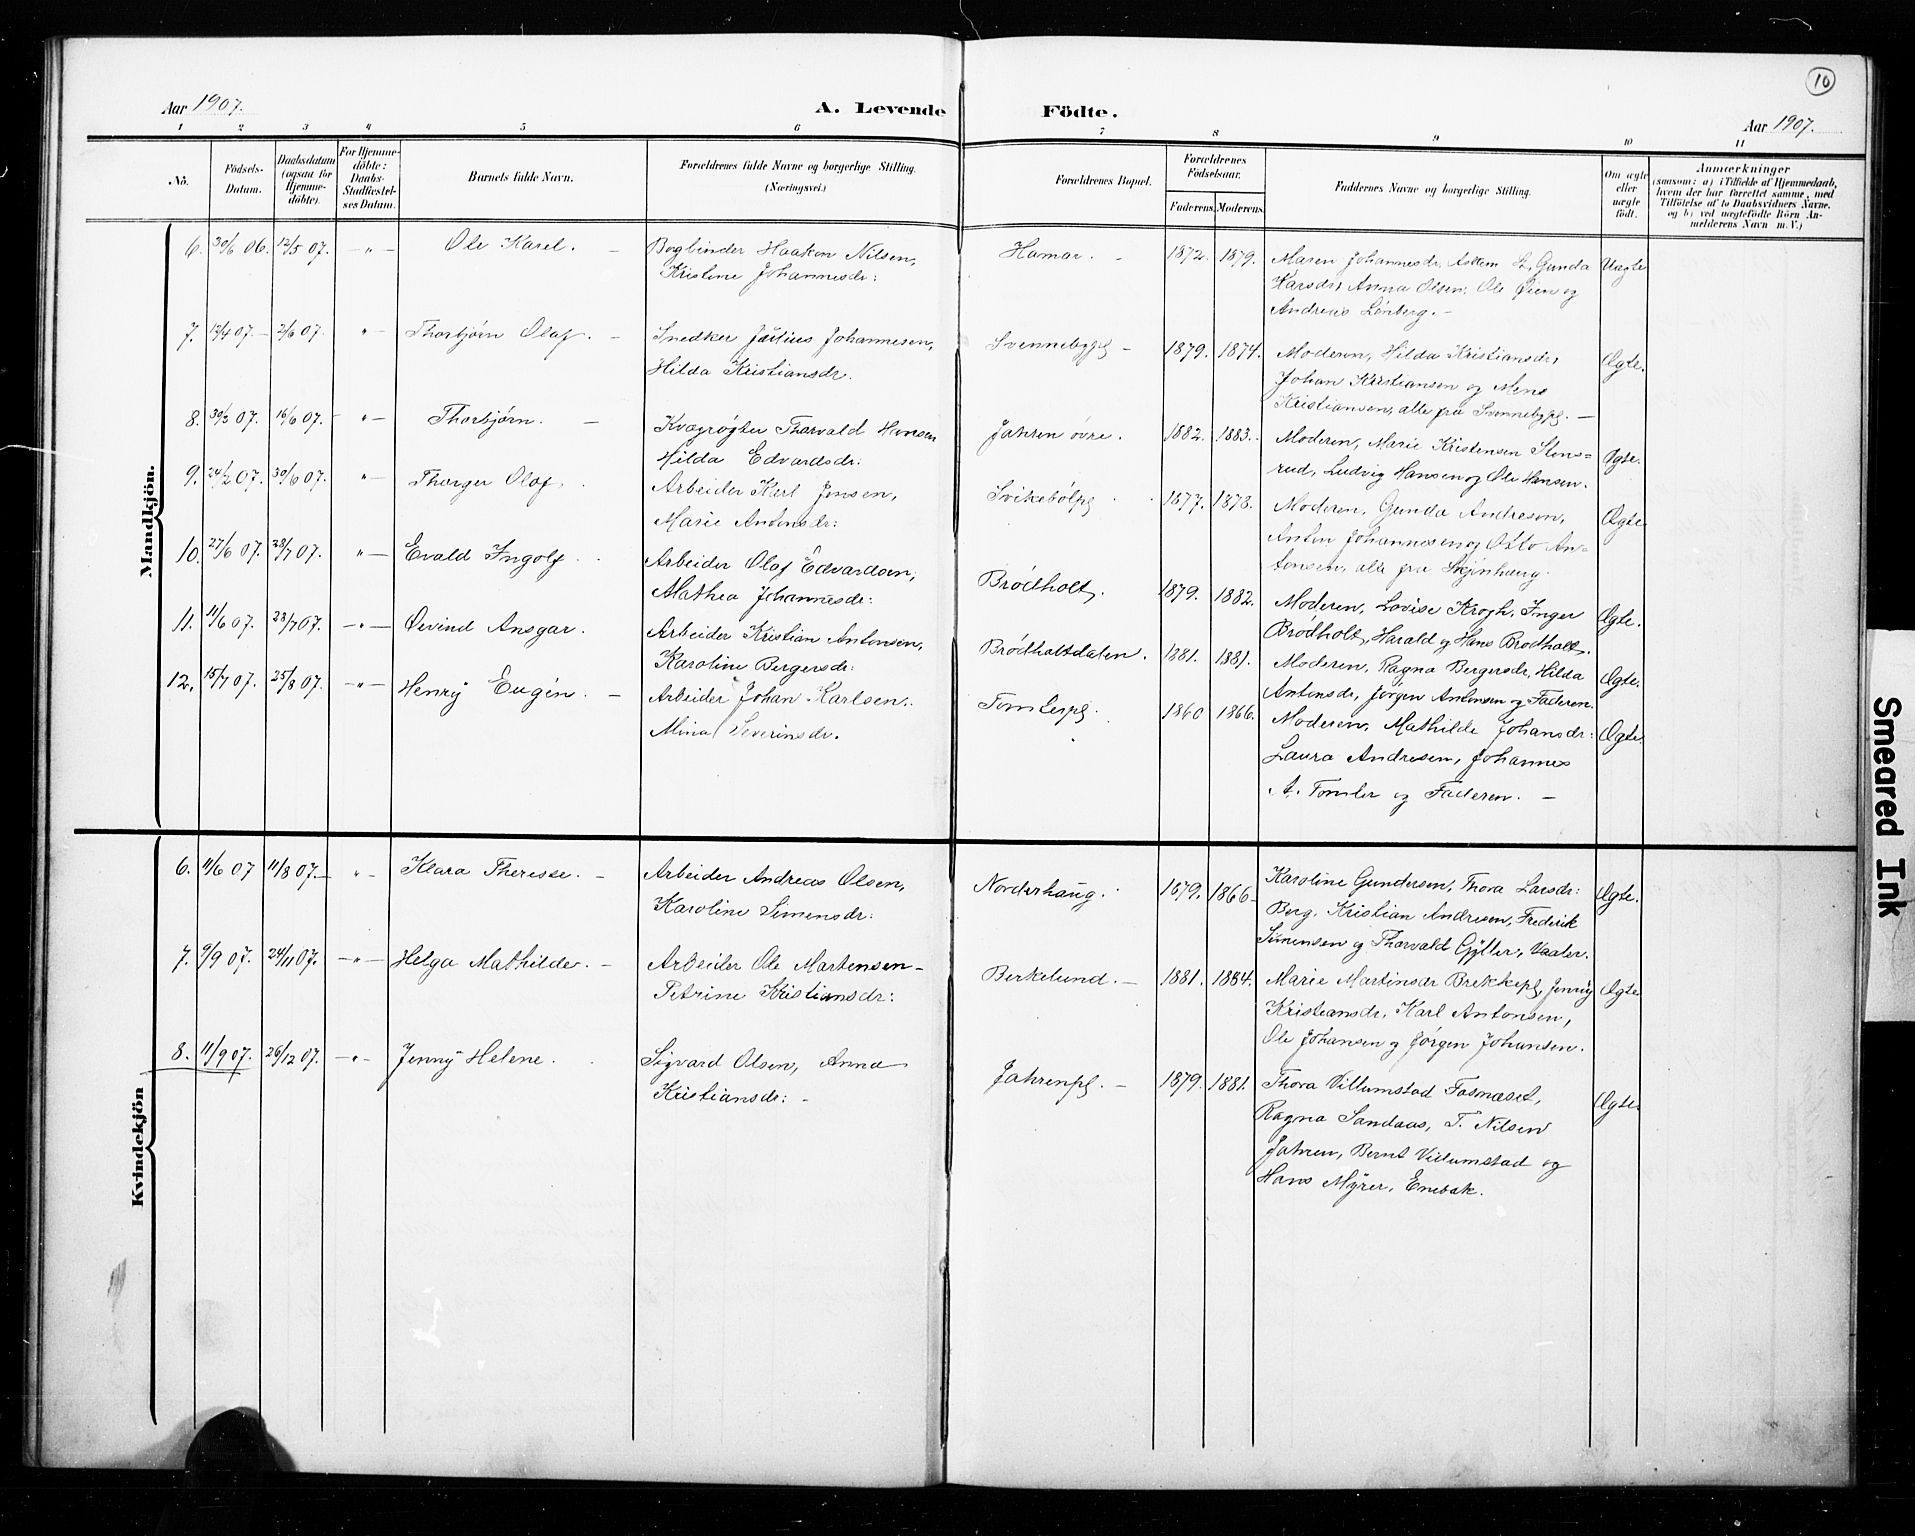 10
Aar 1907.
A. Levende Födte.
Aar 1907.
1 2 3 4 5 6 7 8 9 10 11
No.
Födsels-Datum.
Daabsdatum (ogsaa for Hjemmedöbte).
For Hjemmedöbte: Daabs-Stadfæstelses Datum.
Barnets fulde Navn.
Forældrenes fulde Navne og borgerlige Stilling.
(Næringsvei.)
Forældrenes Bopæl.
Forældrenes Födselsaar.
Faderens. Moderens.
Faddernes Navne og borgerlige Stilling.
Om ægte eller uægte födt.
Anmærkninger
(saasom: a) i Tilfælde af Hjemmedaab,
hvem der har forrettet samme, med
Tilföielse af to Daabsvidners Navne,
og b) ved uægtefödte Börn An-
melderens Navn m. V.)
Mandkjön.
6. 30/6 06. 12/5 07. — " — Ole Karel. — Bogbinder Haakon Nilsen, Hamar. - 1872. 1879. Maren Johannesdr, L, Gunda Uægte
Kristine Johannesdr: Karsdr, Anna Olsen, Ole Øien og
Andreas Lønberg. —
7. 12/4 07. — 2/6 07. " — Thorbjørn Olaf. — Snedker Julius Johannesen, Svennebypl — 1879. 1874. Moderen, Hilda Kristiansdr, Ægte.
Hilda Kristiansdr. Johan Kristiansen og Mens
Kristiansen, alle fra Svennebypl. —
8. 30/3 07. 16/6 07. — " — Thorbjørn. — Kvægrøgter Thorvald Hansen Jahren øvre. 1882. 1883. Moderen, Marie Kristensen Stens- Ægte.
Hilda Edvardsdr: rud, Ludvig Hansen og Ole Hansen.
9. 24/2 07. 30/6 07. " — Thorger Olaf. Arbeider Karl Jensen, Svikebølpl 1877. 1878. Moderen, Gunda Andresen, Ægte
Marie Antonsdr: Anton Johannesen og Otto An-
tonsen, alle fra Skjinhaug.
10. 27/6 07. 28/7 07. " — Evald Ingolf. Arbeider Olaf Edvardsen, Brödholt. 1879. 1882. Moderen, Lovise Krogh, Inger Ægte.
Mathea Johannesdr: Brödholt, Harald og Hans Brödholt.
11. 11/6 07. 28/7 07. — " — Øivind Ansgar. Arbeider Kristian Antonsen, Brödholtdalen. 1881. 1881. Moderen, Ragna Bergersdr, Hilda Ægte.
Karoline Bergersdr: Antonsdr, Jörgen Antonsen og Faderen.
12. 15/7 07. 25/8 07. — " — Henry Eugen. — Arbeider Johan Karlsen. Tomlerpl. 1860 1866. Moderen, Mathilde Johansdr: Ægte.
Mina Severinsdr. Laura Andresen, Johannes
A. Tomler og Faderen. —
Kvindekjön
6. 11/6 07 11/8 07. — " - Klara Theresse. — Arbeider Andreas Olsen, Norderhaug. 1879. 1866 Karoline Gundersen, Thora Larsdr: Ægte.
Karoline Simensdr: Berg, Kristian Andresen, Frederik
Simensen og Thorvald Gylter, Vaaler.
7. 9/9 07. 24/11 07. — " — Helga Mathilde. — Arbeider Ole Martensen — Berkelund. — 1881. 1884. Marie Martinsdr Brekkepl, Jenny Ægte
Petrine Kristiansdr: Kristiansdr, Karl Antonsen,
Ole Johansen og Jørgen Johansen.
8. 11/9 07. 26/12 07. — " — Jenny Helene. Sigvard Olsen, Anna Jahrenpl. — 1879. 1881. Thora Villumstad Fosnæset, Ægte.
Kristiansdr: - Ragna Sandaas, T. Nilsen
Jahren, Bernt Villumstad og
Hans Myrer, Enebak.
Smeared Ink